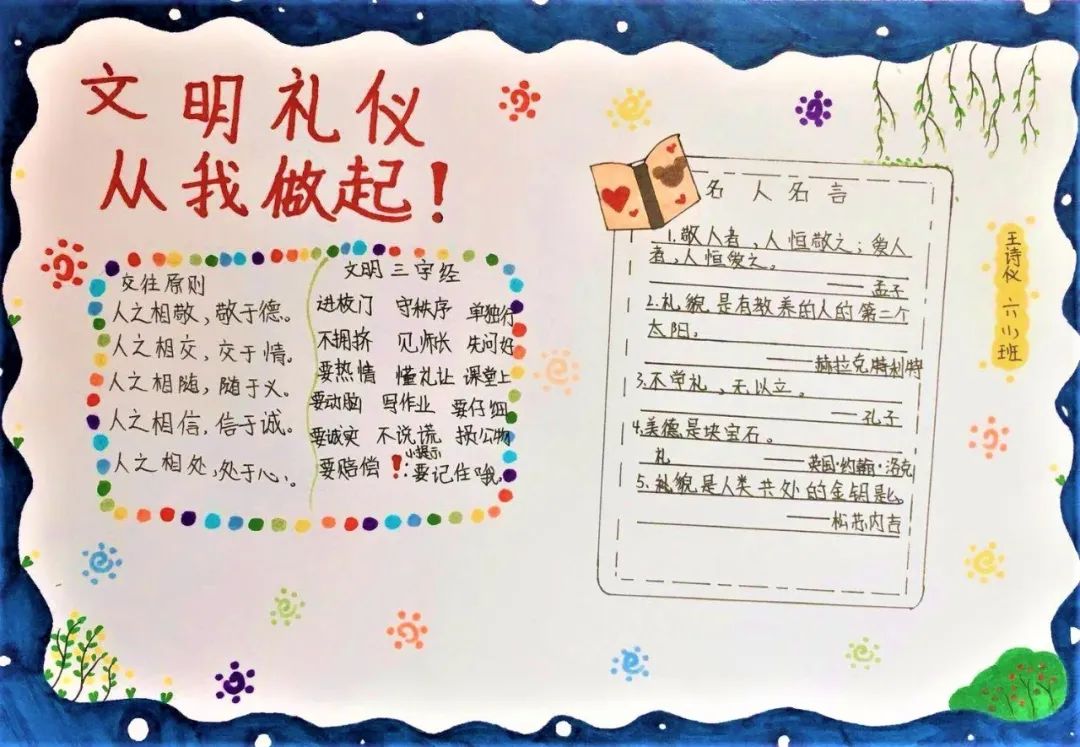 文明礼仪
从我做起!
交往原则
人之相敬,敬于德。
人之相交,交于情。
人之相随,随于义。
人之相信,信于诚。
人之相处,处于心。
文明三字经
进校门 守秩序 单独行
不拥挤 见师长 先问好
要热情 懂礼让 课堂上
要动脑 写作业 要仔细
要诚实 不说谎 损公物
要赔偿
小提示
!:要记住哦
名人名言
1.敬人者,人恒敬之;爱人
者,人恒爱之。
——孟子
2.礼貌是有教养的人的第二个
太阳。
——赫拉克特利特
3.不学礼,无以立。
——孔子
4.美德是块宝石。
礼
——英国·约翰·洛克
5.礼貌是人类共处的金钥匙。
——松苏内吉
王诗仪 六小班